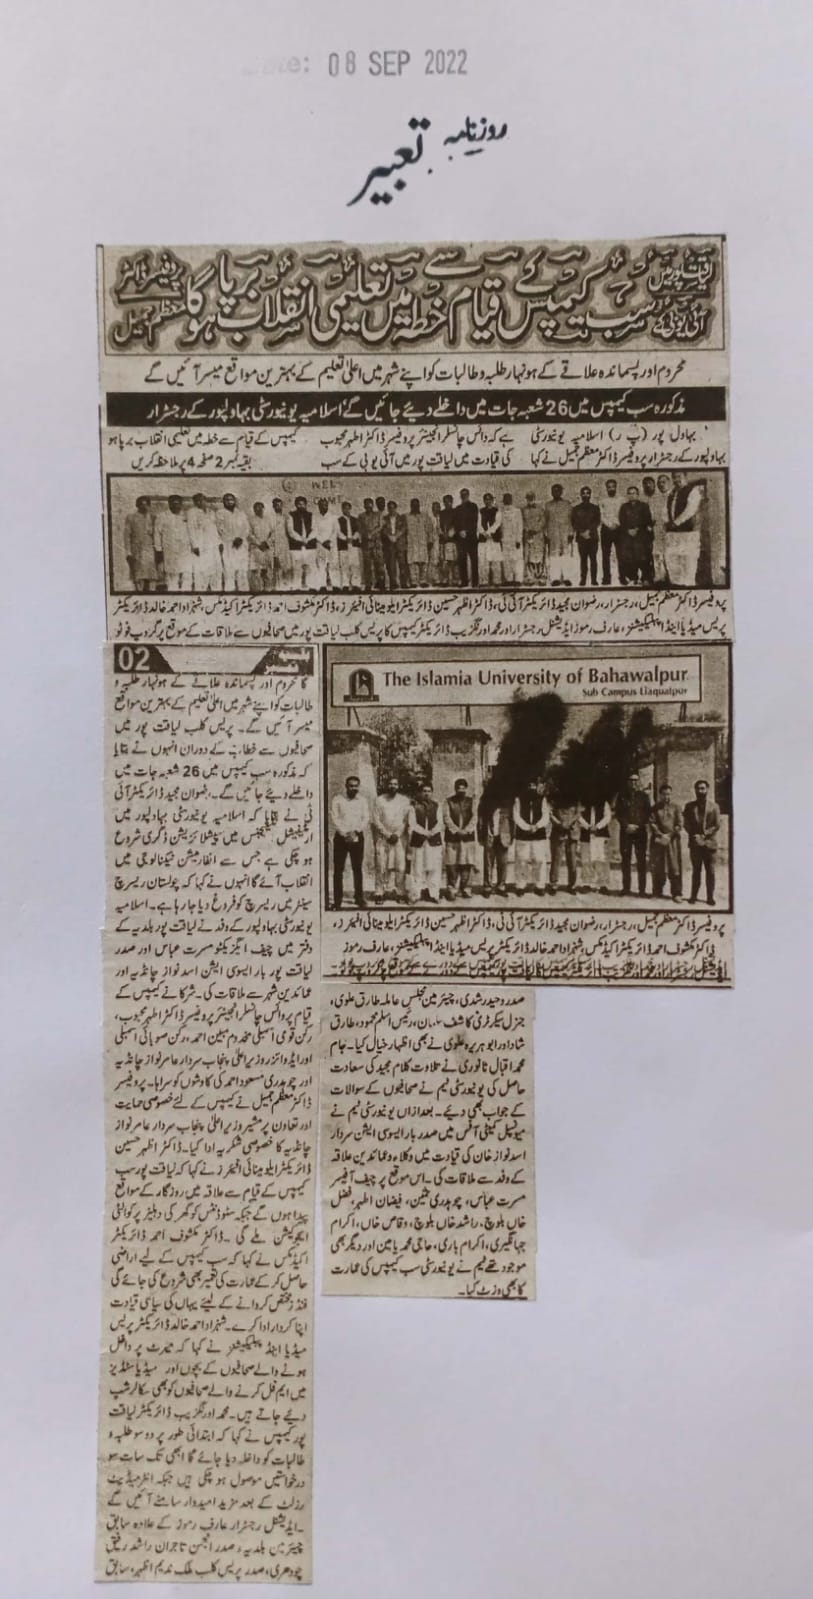 Date: 08 SEP 2022
روزنامہ تعبیر
لیاقت پور میں آئی یو بی کے سب کیمپس کے قیام سے خطہ میں تعلیمی انقلاب برپا ہوگا پروفیسر ڈاکٹر معظم جمیل
محروم اور پسماندہ علاقے کے ہونہار طلبہ و طالبات کو اپنے شہر میں اعلیٰ تعلیم کے بہترین مواقع میسر آئیں گے
مذکورہ سب کیمپس میں 26 شعبہ جات میں داخلے دیئے جائیں گے' اسلامیہ یونیورسٹی بہاولپور کے رجسٹرار
بہاول پور (پ ر) اسلامیہ یونیورسٹی
بہاولپور کے رجسٹرار پروفیسر ڈاکٹر معظم جمیل نے کہا
ہے کہ وائس چانسلر انجینئر پروفیسر ڈاکٹر اطہر محبوب
کی قیادت میں لیاقت پور میں آئی یو بی کے سب
کیمپس کے قیام سے خطہ میں تعلیمی انقلاب برپا ہو
بقیہ نمبر 2 صفحہ 4 پر ملاحظہ کریں
پروفیسر ڈاکٹر معظم جمیل، رجسٹرار، رضوان مجید ڈائریکٹر آئی ٹی، ڈاکٹر اظہر حسین ڈائریکٹر ایلومینائی افیئرز، ڈاکٹر مکشوف احمد ڈائریکٹر اکیڈمکس، شہزاد احمد خالد ڈائریکٹر
پریس میڈیا اینڈ پبلیکیشنز، عارف رموز ایڈیشنل رجسٹرار اور محمد اورنگزیب ڈائریکٹر کیمپس کا پریس کلب لیاقت پور میں صحافیوں سے ملاقات کے موقع پر گروپ فوٹو
02
گا محروم اور پسماندہ علاقے کے ہونہار طلبہ و
طالبات کو اپنے شہر میں اعلیٰ تعلیم کے بہترین مواقع
میسر آئیں گے۔ پریس کلب لیاقت پور میں
صحافیوں سے خطاب کے دوران انہوں نے بتایا
کہ مذکورہ سب کیمپس میں 26 شعبہ جات میں
داخلے دیئے جائیں گے۔ رضوان مجید ڈائریکٹر آئی
ٹی نے بتایا کہ اسلامیہ یونیورسٹی بہاولپور میں
آرٹیفیشل انٹیلیجنس میں سپیشلائزیشن ڈگری شروع
ہو چکی ہے جس سے انفارمیشن ٹیکنالوجی میں
انقلاب آئے گا انہوں نے کہا کہ چولستان ریسرچ
سینٹر میں ریسرچ کو فروغ دیا جا رہا ہے۔ اسلامیہ
یونیورسٹی بہاولپور کے وفد نے لیاقت پور بلدیہ کے
دفتر میں چیف ایگزیکٹو مسرت عباس اور صدر
لیاقت پور بار ایسوسی ایشن اسد نواز چانڈیہ اور
عمائدین شہر سے ملاقات کی۔ شرکا نے کیمپس کے
قیام پر وائس چانسلر انجینئر پروفیسر ڈاکٹر اطہر محبوب،
رکن قومی اسمبلی مخدوم مبین احمد، رکن صوبائی اسمبلی
اور ایڈوائزر وزیر اعلیٰ پنجاب سردار عامر نواز چانڈیہ
اور چوہدری مسعود احمد کی کاوشوں کو سراہا۔ پروفیسر
ڈاکٹر معظم جمیل نے کیمپس کے لئے خصوصی حمایت
اور تعاون پر مشیر وزیر اعلیٰ پنجاب سردار عامر نواز
چانڈیہ کا خصوصی شکریہ ادا کیا۔ ڈاکٹر اظہر حسین
ڈائریکٹر ایلومینائی افیئرز نے کہا کہ لیاقت پور سب
کیمپس کے قیام سے علاقہ میں روزگار کے مواقع
پیدا ہوں گے جبکہ سٹوڈنٹس کو گھر کی دہلیز پر کوالٹی
ایجوکیشن ملے گی۔ ڈاکٹر مکشوف احمد ڈائریکٹر
اکیڈمکس نے کہا کہ سب کیمپس کے لیے اراضی
حاصل کر کے عمارت کی تعمیر بھی شروع کی جائے گی
فنڈز مختص کروانے کے لیئے یہاں کی سیاسی قیادت
اپنا کردار ادا کرے۔ شہزاد احمد خالد ڈائریکٹر پریس
میڈیا اینڈ پبلیکیشنز نے کہا کہ میرٹ پر داخل
ہونے والے صحافیوں کے بچوں اور میڈیا سٹڈیز
میں ایم فل کرنے والے صحافیوں کو بھی سکالرشپ
دیئے جاتے ہیں۔ محمد اورنگزیب ڈائریکٹر لیاقت
پور کیمپس نے کہا کہ ابتدائی طور پر دو سو طلبہ و
طالبات کو داخلہ دیا جائے گا ابھی تک سات سو
درخواستیں موصول ہو چکی ہیں جبکہ انٹرمیڈیٹ
رزلٹ کے بعد مزید امیدوار سامنے آئیں گے
۔ ایڈیشنل رجسٹرار عارف رموز کے علاوہ سابق
چیئرمین بلدیہ و صدر انجمن تاجران راشد رفیق
چودھری، صدر پریس کلب ملک ندیم اظہر، سابق
The Islamia University of Bahawalpur
Sub Campus Liaquatpur
پروفیسر ڈاکٹر معظم جمیل، رجسٹرار، رضوان مجید ڈائریکٹر آئی ٹی، ڈاکٹر اظہر حسین ڈائریکٹر ایلومینائی افیئرز،
ڈاکٹر مکشوف احمد ڈائریکٹر اکیڈمکس، شہزاد احمد خالد ڈائریکٹر پریس میڈیا اینڈ پبلیکیشنز، عارف رموز
صدر وحید رشدی، چیئرمین مجلس عاملہ طارق علوی،
جنرل سیکرٹری کاشف سلمان، رئیس اسلم محمود، طارق
شاد اور ابو ہریرہ علوی نے بھی اظہار خیال کیا۔ جام
محمد اقبال نانوری نے تلاوت کلام مجید کی سعادت
حاصل کی یونیورسٹی ٹیم نے صحافیوں کے سوالات
کے جواب بھی دیئے۔ بعد ازاں یونیورسٹی ٹیم نے
میونسپل کمیٹی آفس میں صدر بار ایسوسی ایشن سردار
اسد نواز خان کی قیادت میں وکلاء و عمائدین علاقہ
کے وفد سے ملاقات کی۔ اس موقع پر چیف آفیسر
مسرت عباس، چوہدری متین، فیضان اطہر، فضل
خاں بلوچ، راشد خاں بلوچ، وقاص خاں، اکرام
جہانگیری، اکرام باری، حاجی محمد یامین اور دیگر بھی
موجود تھے ٹیم نے یونیورسٹی سب کیمپس کی عمارت
کا بھی وزٹ کیا۔